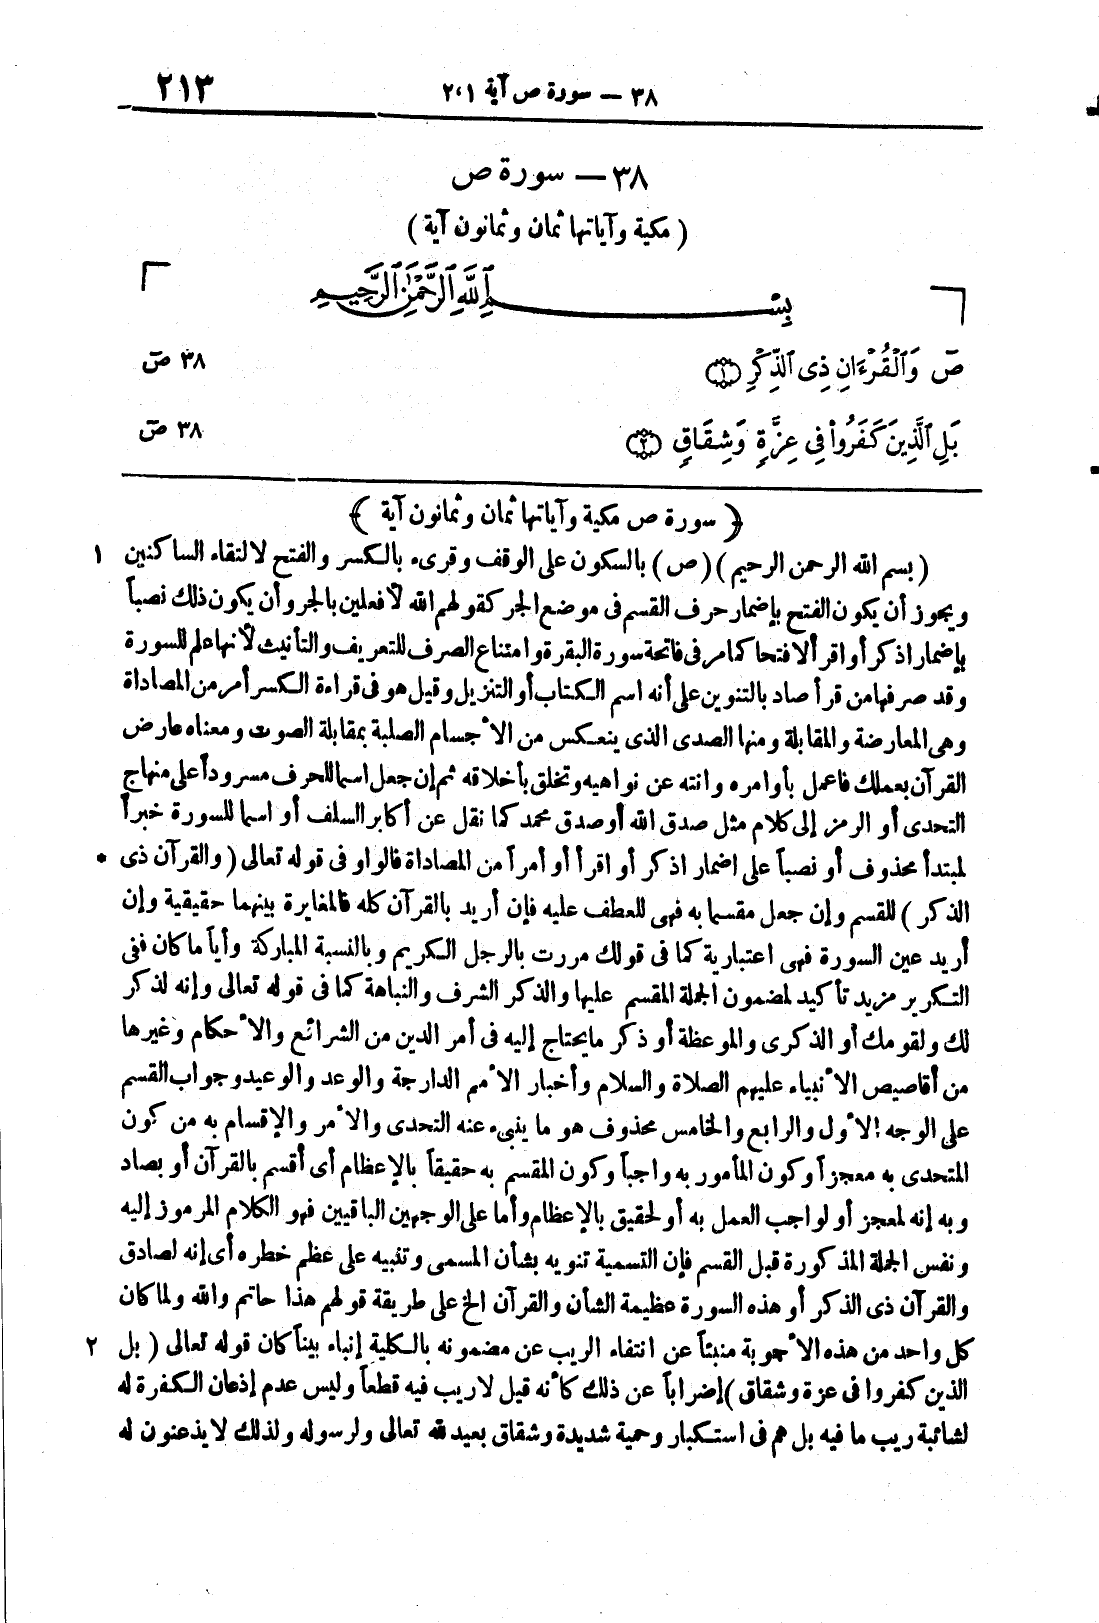 ٣٨ — سورة ص آية ٢،١ ٢١٣
٣٨ — سورة ص
( مكية وآياتها ثمان وثمانون آية )
بِسْمِ ٱللَّهِ ٱلرَّحْمَٰنِ ٱلرَّحِيمِ
صٓ وَٱلْقُرْءَانِ ذِى ٱلذِّكْرِ ﴿١﴾ ٣٨ صٓ
بَلِ ٱلَّذِينَ كَفَرُوا۟ فِى عِزَّةٍ وَشِقَاقٍ ﴿٢﴾ ٣٨ صٓ
﴿ سورة ص مكية وآياتها ثمان وثمانون آية ﴾
( بسم الله الرحمن الرحيم ) ( ص ) بالسكون على الوقف وقرىء بالكسر والفتح لالتقاء الساكنين ١
ويجوز أن يكون الفتح بإضمار حرف القسم فى موضع الجر كقولهم الله لأفعلين بالجر وأن يكون ذلك نصباً
بإضمار اذكر أو اقرأ لا فتحا كما مر فى فاتحة سورة البقرة وامتناع الصرف للتعريف والتأنيث لأنها علم للسورة
وقد صرفها من قرأ صاد بالتنوين على أنه اسم الكتاب أو التنزيل وقيل هو فى قراءة الكسر أمر من المصاداة
وهى المعارضة والمقابلة ومنها الصدى الذى ينعكس من الأجسام الصلبة بمقابلة الصوت ومعناه عارض
القرآن بعملك فاعمل بأوامره وانته عن نواهيه وتخلق بأخلاقه ثم إن جعل اسما للحرف مسروداً على منهاج
التحدى أو الرمز إلى كلام مثل صدق الله أو صدق محمد كما نقل عن أكابر السلف أو اسما للسورة خبراً
لمبتدأ محذوف أو نصباً على اضمار اذكر أو اقرأ أو أمراً من المصاداة فالواو فى قوله تعالى ( والقرآن ذى *
الذكر ) للقسم وإن جعل مقسما به فهى للعطف عليه فإن أريد بالقرآن كله فالمغايرة بينهما حقيقية وإن
أريد عين السورة فهى اعتبارية كما فى قولك مررت بالرجل الكريم وبالنسبة المباركة وأياً ما كان ففى
التكرير مزيد تأكيد لمضمون الجملة المقسم عليها والذكر الشرف والنباهة كما فى قوله تعالى وإنه لذكر
لك ولقومك أو الذكرى والموعظة أو ذكر ما يحتاج إليه فى أمر الدين من الشرائع والأحكام وغيرها
من أقاصيص الأنبياء عليهم الصلاة والسلام وأخبار الأمم الدارجة والوعد والوعيد وجواب القسم
على الوجه الأول والرابع والخامس محذوف هو ما ينبىء عنه التحدى والأمر والإقسام به من كون
المتحدى به معجزاً وكون المأمور به واجباً وكون المقسم به حقيقاً بالإعظام أى أقسم بالقرآن أو بصاد
وبه إنه لمعجز أو لواجب العمل به أو لحقيق بالإعظام وأما على الوجهين الباقيين فهو الكلام المرموز إليه
ونفس الجملة المذكورة قبل القسم فإن التسمية تنويه بشأن المسمى وتنبيه على عظم خطره أى إنه لصادق
والقرآن ذى الذكر أو هذه السورة عظيمة الشأن والقرآن الخ على طريقة قولهم هذا حاتم والله ولما كان
كل واحد من هذه الأجوبة منبئاً عن انتفاء الريب عن مضمونه بالكلية إنباء بيناً كان قوله تعالى ( بل ٢
الذين كفروا فى عزة وشقاق ) إضراباً عن ذلك كأنه قيل لا ريب فيه قطعاً وليس عدم إذعان الكفرة له
لشائبة ريب ما فيه بل هم فى استكبار وحمية شديدة وشقاق بعيد لله تعالى ولرسوله ولذلك لا يذعنون له